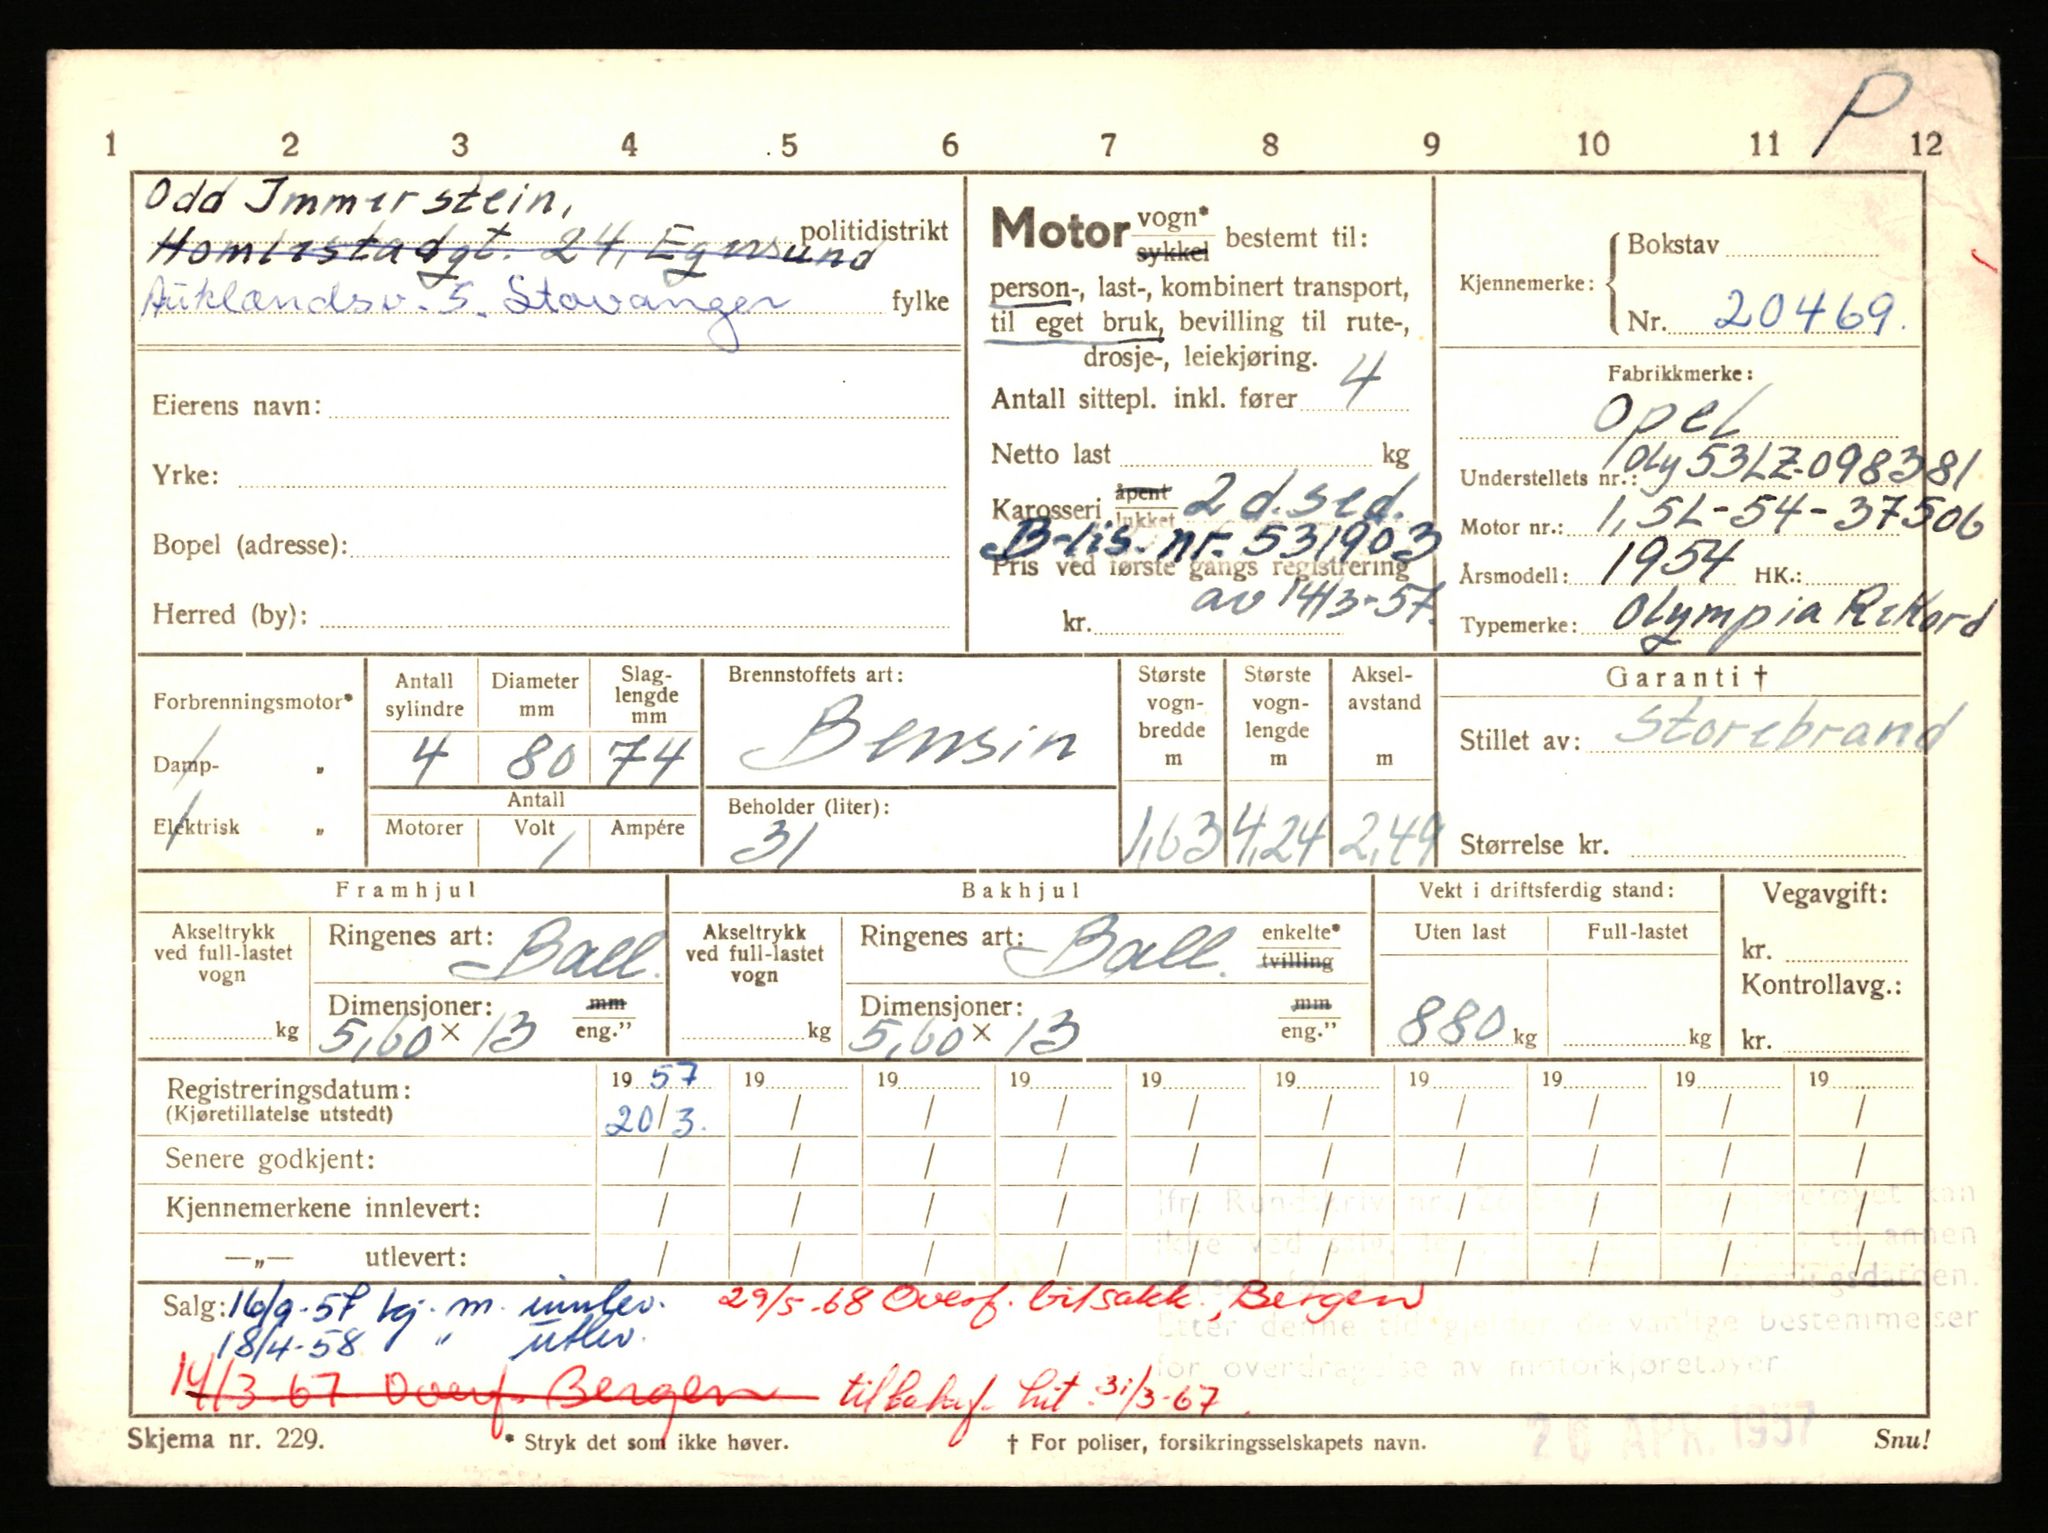 P
1 2 3 4 5 6 7 8 9 10 11 12
Odd Immerstein,
politidistrikt
Homlestadgt. 24, Egersund
Auklandsv. 5. Stavanger fylke
Eierens navn:
Yrke:
Bopel (adresse):
Herred (by):
Motor vogn* sykkel bestemt til:
person-, last-, kombinert transport,
til eget bruk, bevilling til rute-,
drosje-, leiekjøring.
Antall sittepl. inkl. fører 4
Netto last kg
Karosseri åpent lukket 2 d. sed.
B-lis. nr. 531903
Pris ved første gangs registrering
av 14/3-57.
kr.
Kjennemerke: Bokstav
Nr. 20469.
Fabrikkmerke:
Opel
Understellets nr.: Oly53LZ-098381
Motor nr.: 1,5L-54-37506
Årsmodell: 1954 HK.:
Typemerke: Olympia Rekord
Forbrenningsmotor*
Damp- „
Elektrisk „
Antall sylindre Diameter mm Slaglengde mm
4 80 74
Antall
Motorer Volt Ampére
Brennstoffets art:
Bensin
Beholder (liter):
31
Største vognbredde m Største vognlengde m Akselavstand m
1,63 4,24 2,49
Garanti †
Stillet av: Storebrand
Størrelse kr.
Framhjul
Akseltrykk ved full-lastet vogn
kg
Ringenes art: Ball.
Dimensjoner: mm eng."
5,60 x 13
Bakhjul
Akseltrykk ved full-lastet vogn
kg
Ringenes art: Ball. enkelte* tvilling
Dimensjoner: mm eng."
5,60 x 13
Vekt i driftsferdig stand:
Uten last Full-lastet
880 kg kg
Vegavgift:
kr.
Kontrollavg.:
kr.
Registreringsdatum: 19 57 19 19 19 19 19 19 19 19 19
(Kjøretillatelse utstedt) 20/3. / / / / / / / / /
Senere godkjent: / / / / / / / / / /
Kjennemerkene innlevert: / / / / / / / / / /
—„— utlevert: / / / / / / / / / /
Salg: 16/9-57 kj. m. innlev. 29/5-68 Overf. bilsakk., Bergen
18/4-58 " utlev.
14/3-67 Overf. Bergen tilbakef. hit 31/3-67.
Etter denne tid gjelder de vanlige bestemmelser
for overdragelse av motorkjøretøyer
26 APR. 1957
Skjema nr. 229. * Stryk det som ikke høver. † For poliser, forsikringsselskapets navn. Snu!